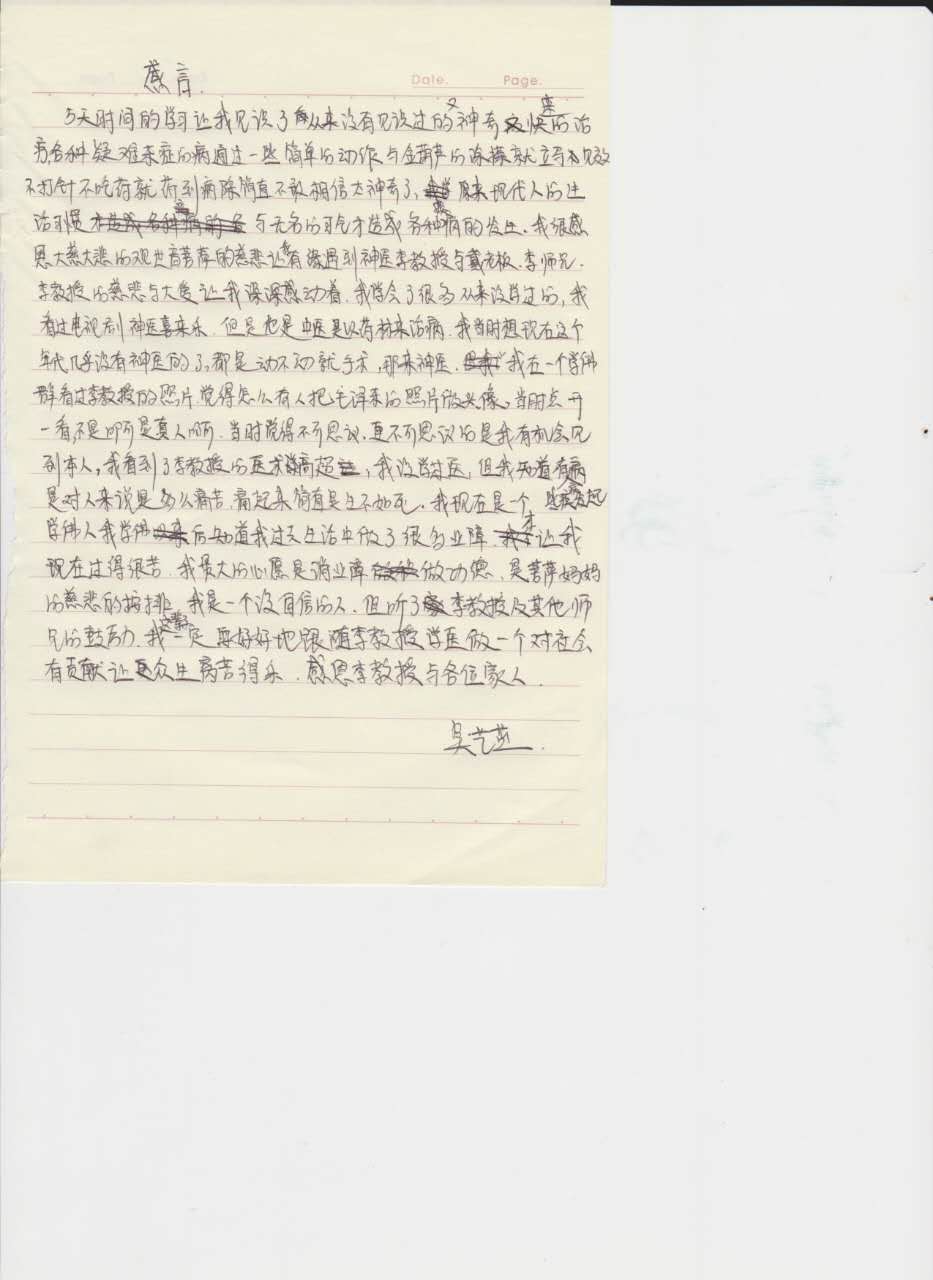 Date. Page.
感言.
5天时间的学习让我见识了从来没有见识过的神奇又快的治
疗各种疑难杂症的病通过一些简单的动作与金葫芦的除揉就立马见效
不打针不吃药就药到病除简直不敢相信太神奇了,原来现代人的生
活习惯与无名的习气才造成各种病的发生.我很感
恩大慈大悲的观世音菩萨的慈悲让我有缘遇到神医李教授与戴老板.李师兄.
李教授的慈悲与大爱让我深深感动着.我学会了很多从来没学过的,我
看过电视剧神医喜来乐.但是也是中医是以药材来治病.我当时想现在这个
年代几乎没有神医的了,都是动不动就手术,那来神医.我在一个学佛
群看过李教授的照片.觉得怎么有人把毛泽东的照片做头像,当时点开
一看,不是啊是真人啊.当时觉得不可思议.更不可思议的是我有机会见
到本人,我看到了李教授的医术高超,我没学过医,但我知道有病
是对人来说是多么痛苦.痛起来简直是生不如死.我现在是一个
学佛人我学佛后知道我过去生活中做了很多业障.才让我
现在过得很苦.我最大的心愿是消业障做功德.是菩萨妈妈
的慈悲的按排.我是一个没自信的人.但听了李教授及其他师
兄的鼓励.我一定要好好地跟随李教授学医做一个对社会
有贡献让众生离苦得乐.感恩李教授与各位家人.
吴艺燕.